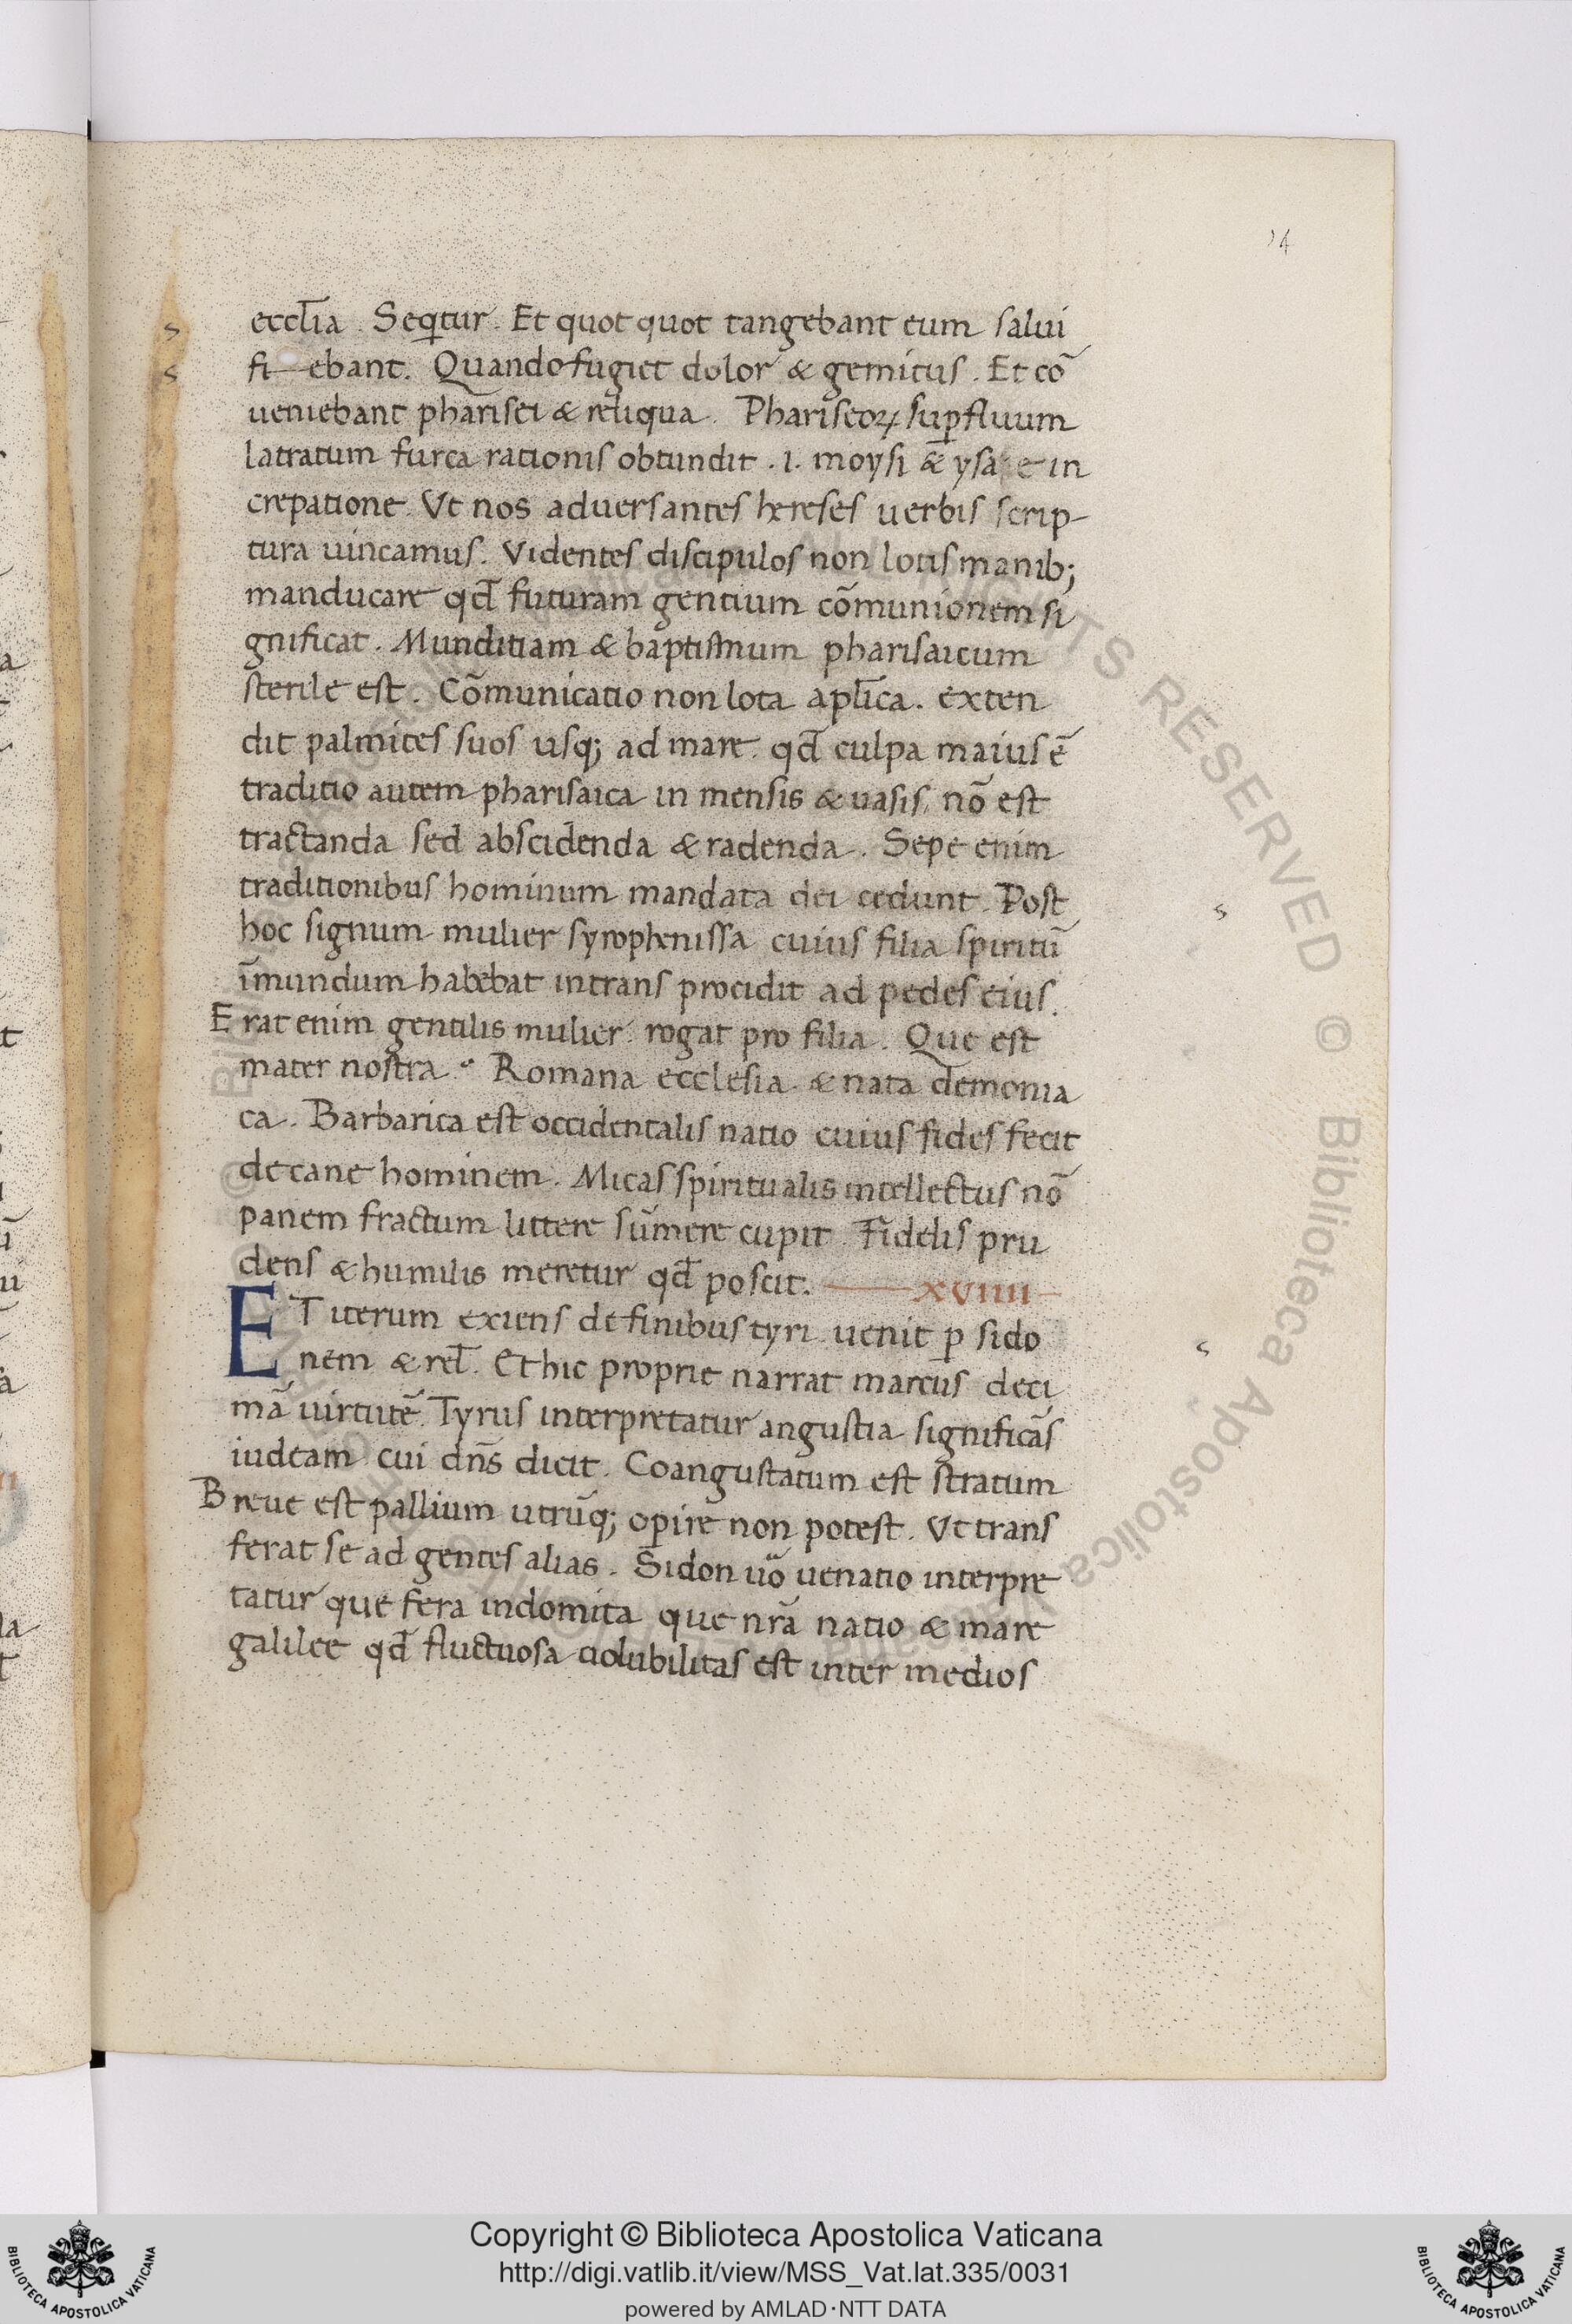 14
eccl̄ia. Seqͥtur. Et quot quot tangebant eum salui
fi—ebant. Quando fugiet dolor & gemitus. Et cō
ueniebant pharisei & reliqua. Phariseoꝝ suꝑfluum
latratum furca rationis obtundit .i. moysi & ysa e in
crepatione. Vt nos aduersantes hereses uerbis scrip-
tura uincamus. Videntes discipulos non lotis manib;
manducare qd̄ futuram gentium cōmunionem si
gnificat. Munditiam & baptismum pharisaicum
sterile est. Cōmunicatio non lota apl̄ica. exten
dit palmites suos usq; ad mare. qd̄ culpa maius ē
traditio autem pharisaica in mensis & uasis, nō est
tractanda sed abscidenda & radenda. Sepe enim
traditionibus hominum mandata dei cedunt. Post
hoc signum mulier syrophenissa cuius filia spiritū
īmundum habebat intrans procidit ad pedes eius.
Erat enim gentilis mulier. rogat pro filia. Que est
mater nostra. Romana ecclesia. & nata demonia
ca. Barbarica est occidentalis natio cuius fides fecit
de cane hominem. Micas spiritualis intellectus nō
panem fractum littere sūmere cupit. Fidelis pru
dens & humilis meretur qd̄ poscit. XVIIII
ET iterum exiens de finibus tyri uenit ꝑ sido
nem & rel̄. Et hic proprie narrat marcus deci
mā uirtutē. Tyrus interpretatur angustia significās
iudeam cui dn̄s dicit. Coangustatum est stratum
Breue est pallium utrūq; oꝑire non potest. Vt trans
ferat se ad gentes alias. Sidon uō uenatio interpre
tatur que fera indomita que nrā natio & mare
galilee qd̄ fluctuosa uolubilitas est inter medios
Copyright © Biblioteca Apostolica Vaticana
http://digi.vatlib.it/view/MSS_Vat.lat.335/0031
powered by AMLAD·NTT DATA
BIBLIOTECA APOSTOLICA VATICANA
BIBLIOTECA APOSTOLICA VATICANA